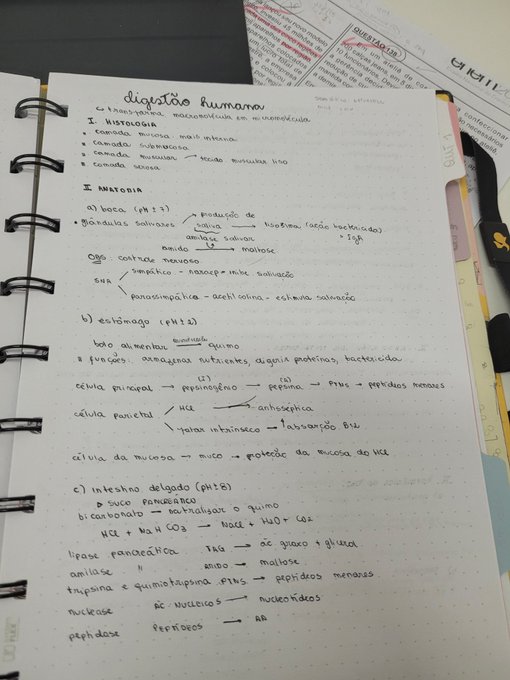 digestão humana
↳ transforma macromolécula em micromolécula
I. HISTOLOGIA
camada mucosa: mais interna
camada submucosa
camada muscular → tecido muscular liso
camada serosa
II. ANATOMIA
a) boca (pH ± 7)
• glândulas salivares → produção de
saliva → lisozima (ação bactericida)
↳ IgA
amilase salivar
amido → maltose
OBS: controle nervoso
SNA
simpático - norep → inibe salivação
parassimpático - acetilcolina - estimula salivação
b) estômago (pH ± 2)
bolo alimentar → quimo
funções: armazenar nutrientes, digerir proteínas, bactericida
célula principal → pepsinogênio → pepsina → PTNs → peptídeos menores
célula parietal
HCl → antisséptica
fator intrínseco → ↑ absorção B12
célula da mucosa → muco → proteção da mucosa do HCl
c) intestino delgado (pH ± 8)
▷ SUCO PANCREÁTICO
bicarbonato → neutralizar o quimo
HCl + NaHCO3 → NaCl + H2O + CO2
lipase pancreática TAG → ác. graxo + glicerol
amilase " AMIDO → maltose
tripsina e quimiotripsina PTNs → peptídeos menores
nuclease AC. NUCLEICOS → nucleotídeos
peptidase PEPTÍDEOS → AA
QUESTÃO 138
enem